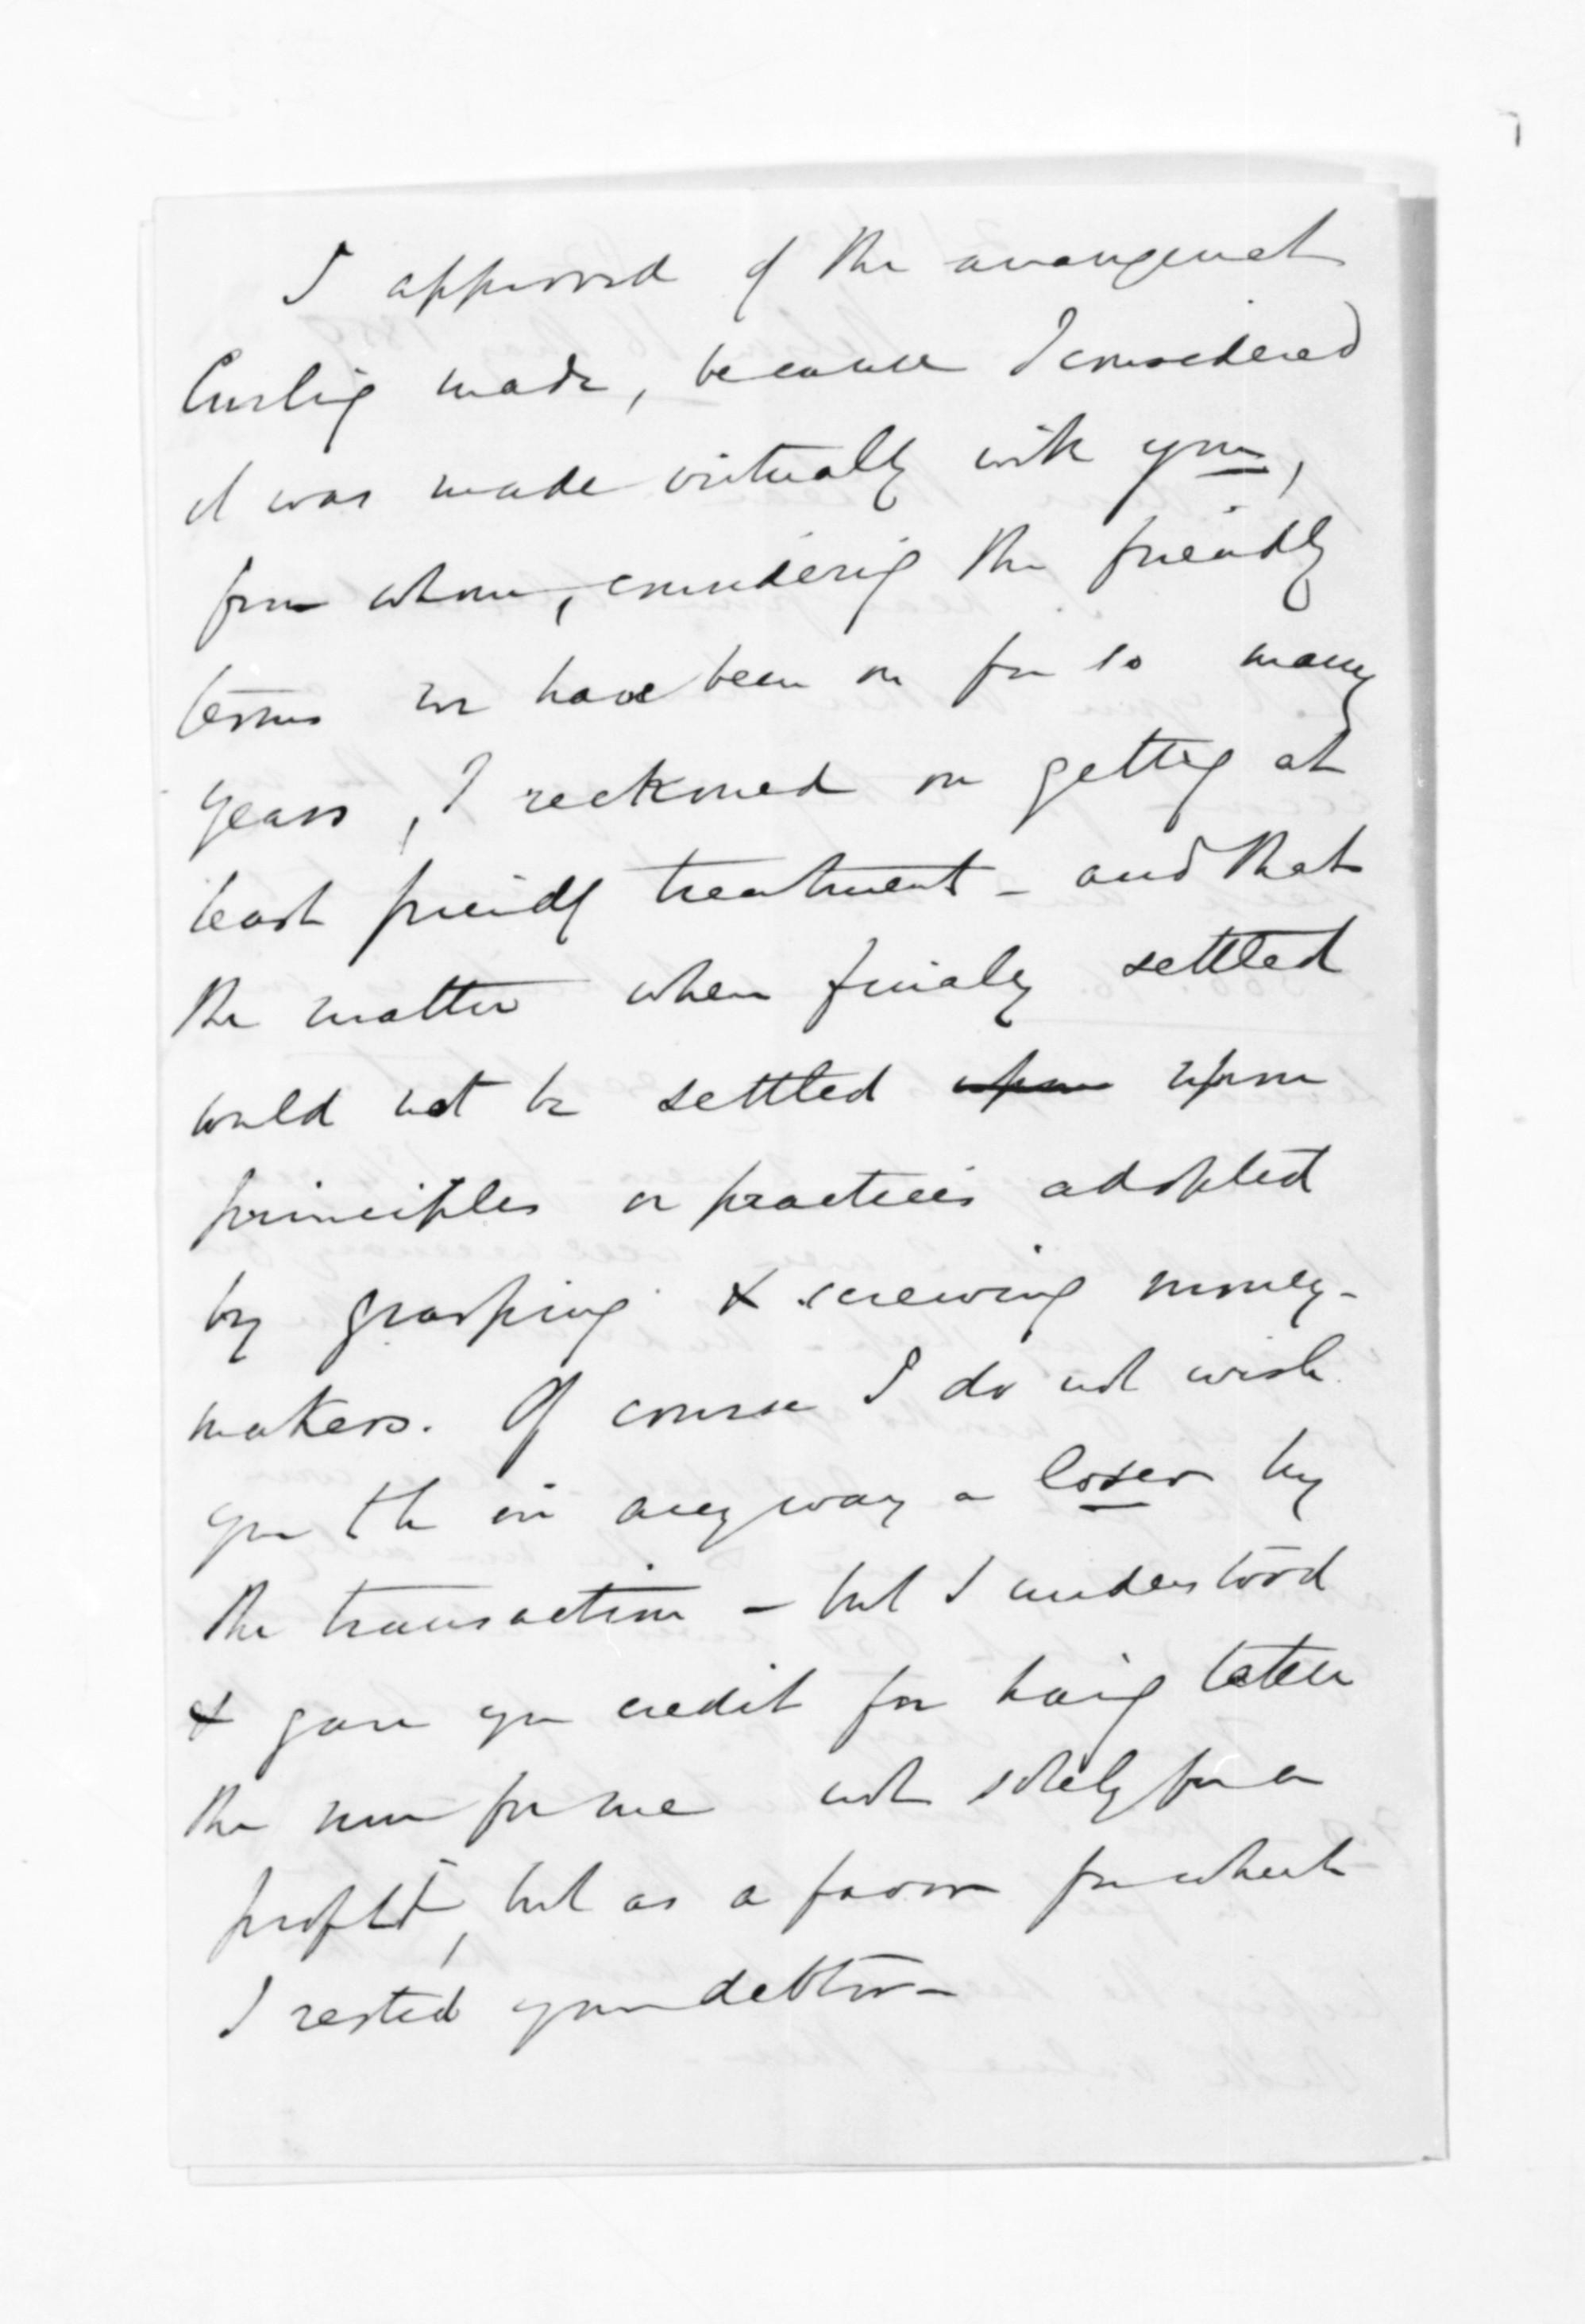 I approved of the arrangement
Curling made, because I considered
it was made virtually with you,
from whom, considering the friendly
terms we have been on for so many
years, I reckoned on getting at
least friendly treatment - and that
the matter when finally settled
would not be settled upon upon
principles or practices adopted
by grasping & screwing money-
makers. Of course I do not wish
you to be in any way a loser by
the transaction - but I understood
& gave you credit for having taken
the run for me not solely for a
profit, but as a favor for which
I rested your debtor -